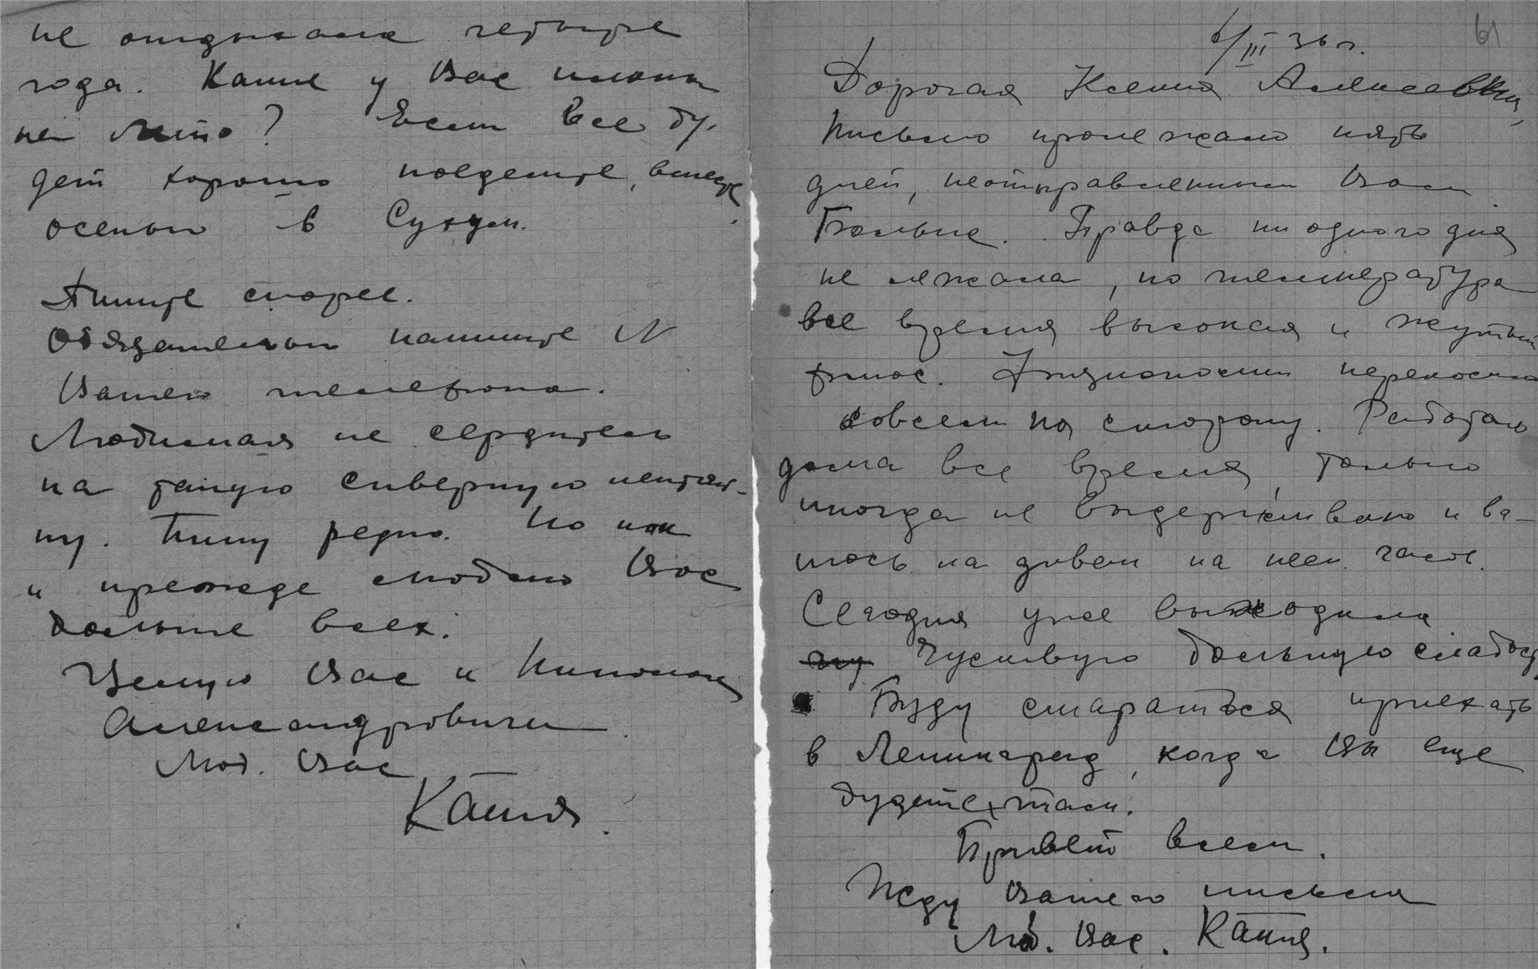 не отдыхала четыре
года. Какие у Вас планы
на лето? Если все бу-
дет хорошо поедемте, вместе
осенью в Суздал.
Пишите скорее.
Обязательно напишите N
Вашего телефона.
Любимая не сердитесь
на такую скверную
Пишу редко. Но как
и прежде люблю Вас
больше всех.
Целую Вас и Николая
Александровича.
Люб. Вас
Катя.
61
6/III 36 г.
Дорогая Ксения Алексеевна,
Письмо пролежало пять
дней, неотправленным Вам.
Больше. Правда ни одного дня
не лежала, но температура
все время высокая и жуткий
флюс. Физиономия перекосила
совсем на сторону. Работаю
дома все время, только
иногда не выдерживаю и ва-
люсь на диван на неск. часов.
Сегодня уже выходила
Чувствую большую слабость
Буду стараться приехать
в Ленинград, когда Вы еще
будете там.
Привет всем.
Жду Вашего письма
Люб. Вас. Катя.